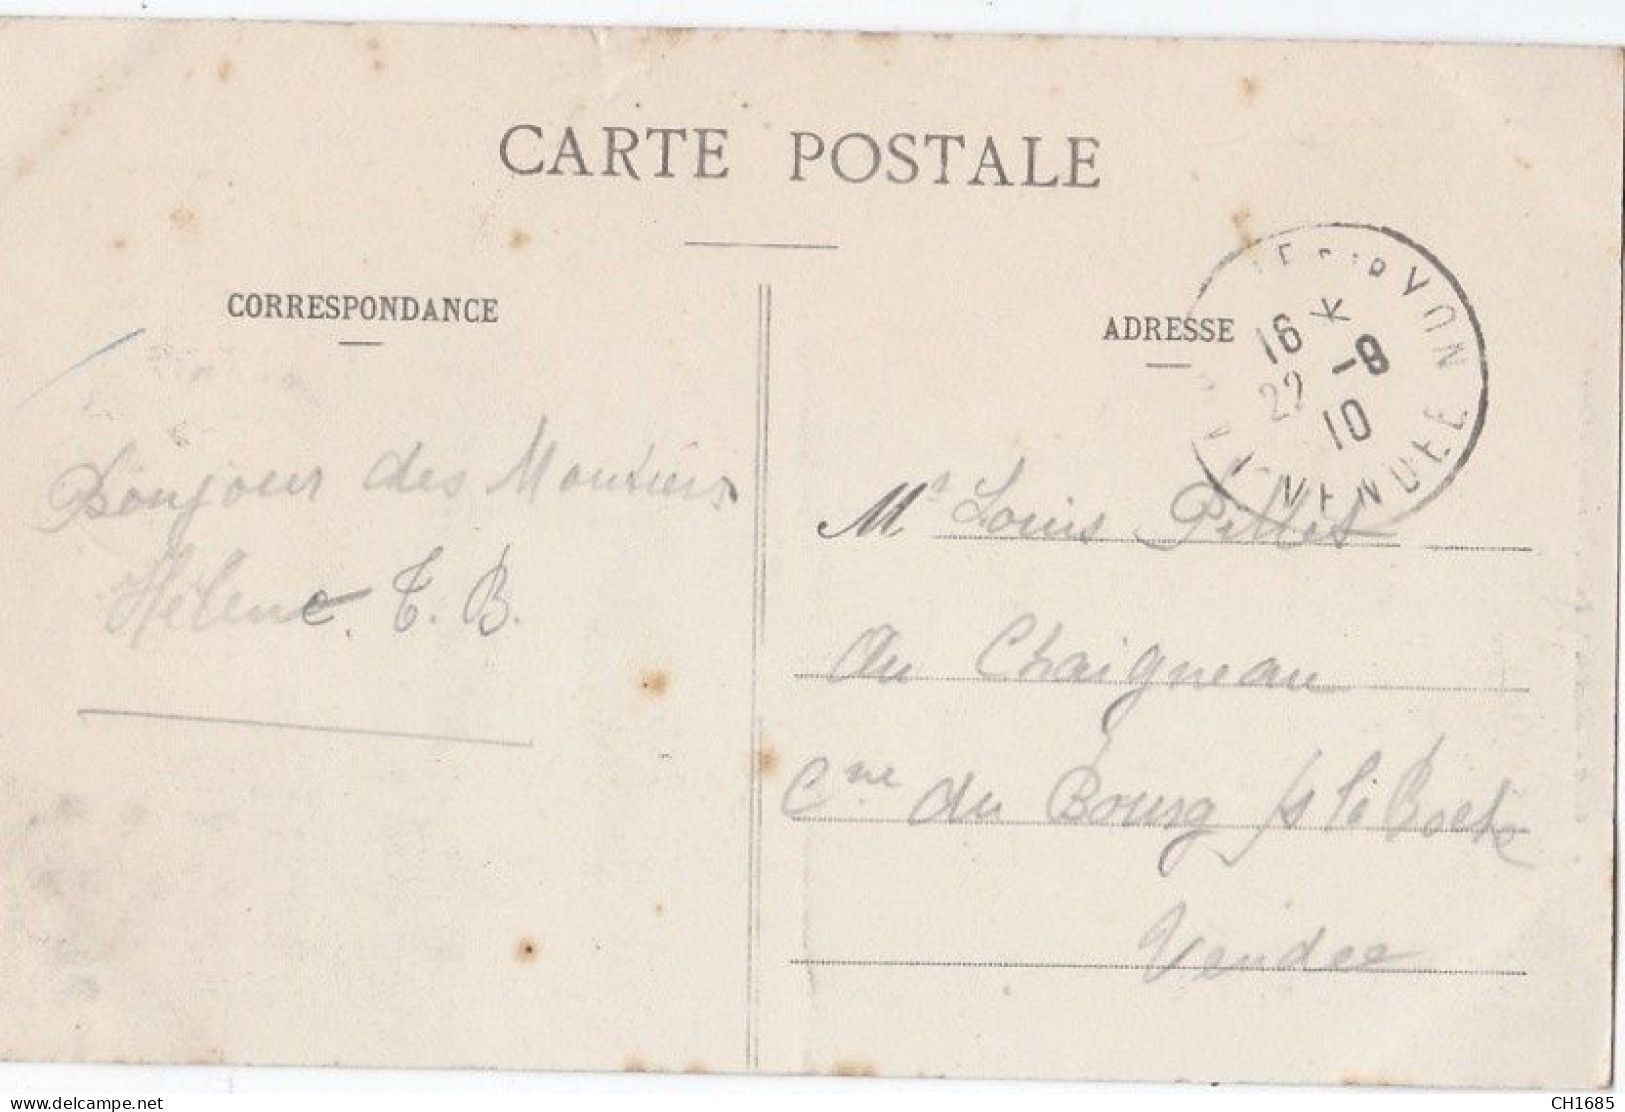 CARTE POSTALE
CORRESPONDANCE
Bonjour des Moutiers
Hélène. T. B.
ADRESSE
YON
VENDÉE
16 *
22 -8
10
Mr Louis Pillet
Au Chaigneau
Cne du Bourg /s la Roche
Vendee
delcampe.net
CH1685